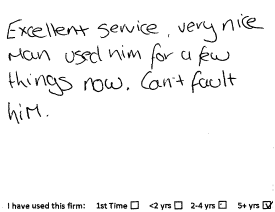 Excellent service, very nice
man used him for a few
things now. Can't fault
him.
I have used this firm: 1st Time ☐ <2 yrs ☐ 2-4 yrs ☐ 5+ yrs ☑